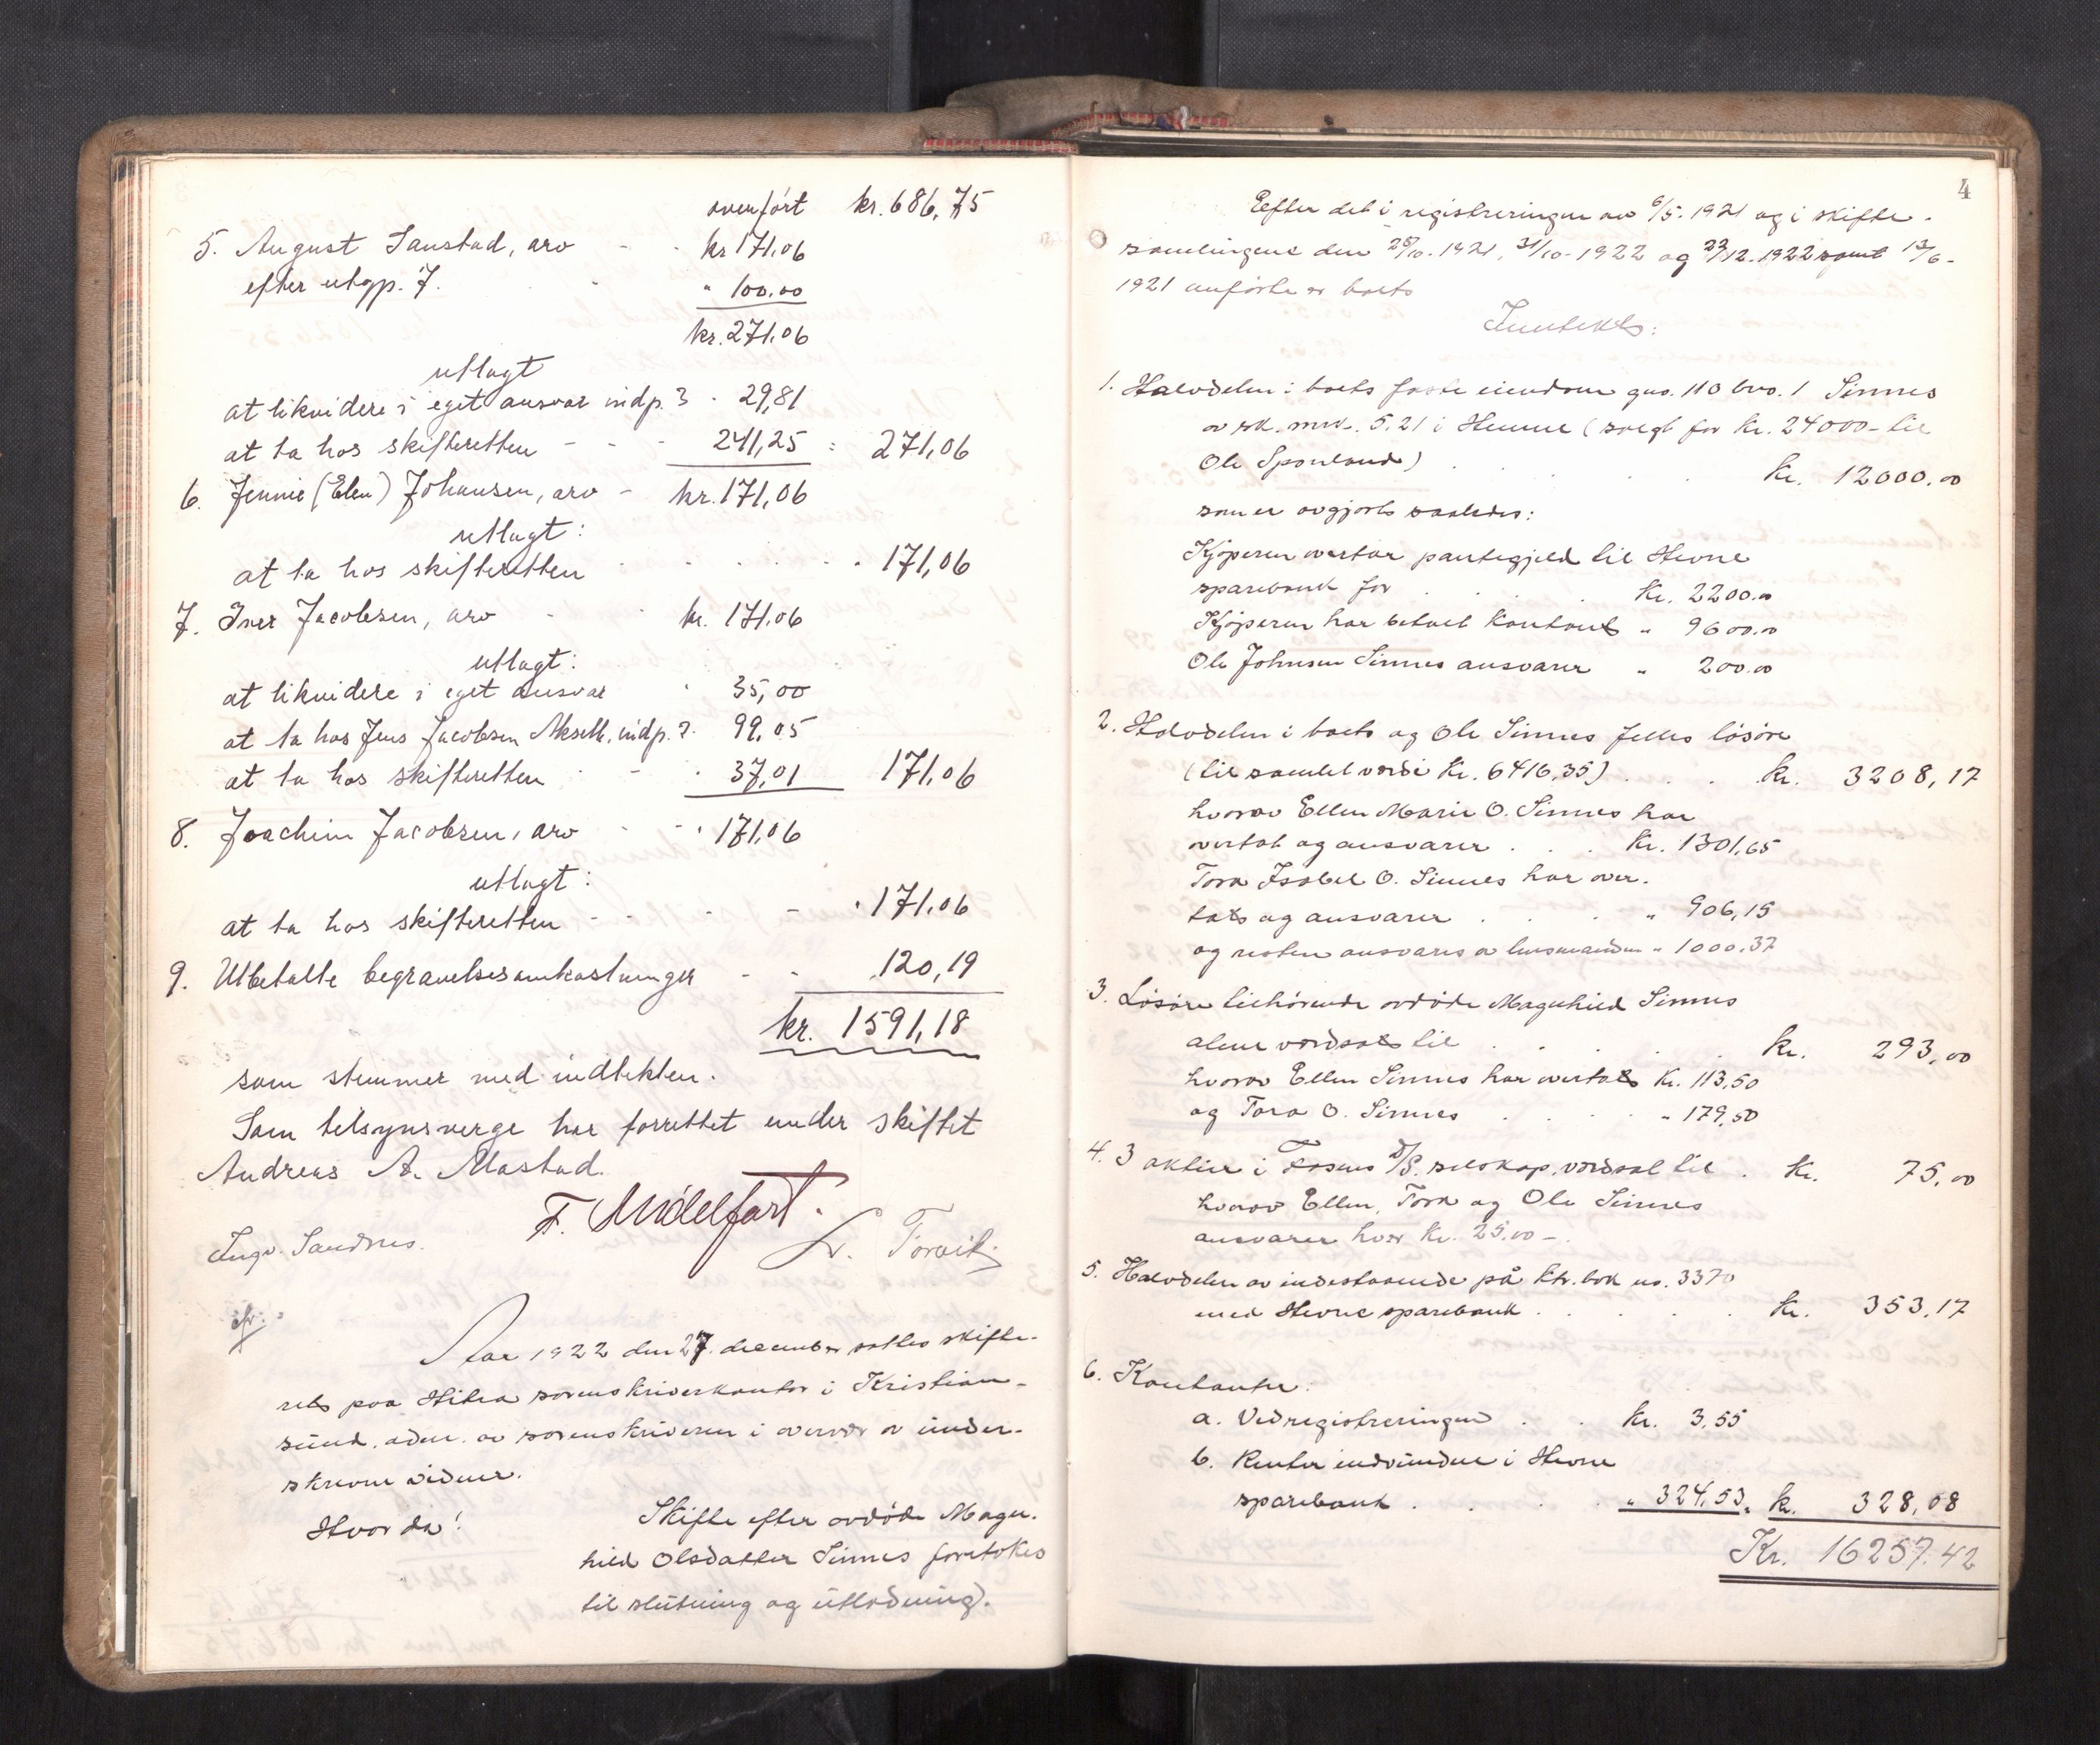 overført kr. 686,75
5. August Sanstad, arv - - kr 171,06
efter utgp. 7. " 100,00
kr. 271,06
utlagt
at likvidere i eget ansvar indp. 3 - 29,81
at ta hos skifteretten - - - 241,25 = 271,06
6. Jennie (Elen) Johansen, arv - kr. 171,06
utlagt:
at ta hos skifteretten . . . . . . 171,06
7. Iver Jacobsen, arv - kr. 171,06
utlagt:
at likvidere i eget ansvar " 35,00
at ta hos Jens Jacobsen indp. 2. 99,05
at ta hos skifteretten - - . 37,01 171,06
8. Joachim Jacobsen, arv - - " 171,06
utlagt:
at ta hos skifteretten - - - - " 171,06
9. Utbetalte begravelsesomkostninger - - 120,19
kr. 1591,18
som stemmer med indtekten.
Som tilsynsverge har forrettet under skiftet
Andreas A. Mastad.
F. Midelfart.
Ingv. Sandnes. 
Aar 1922 den 27. december sattes skifte-
ret paa Hitra sorenskriverkontor i Kristian-
sund, adm. av sorenskriveren i overvær av under-
skrevne vidner.
Hvorda! Skifte efter avdøde Magn-
hild Olsdatter Sinnes foretokes
til slutning og utlodning.
4
Efter det i registreringen av 6/5. 1921 og i skifte-
samlingene den 28/10. 1921, 31/10 - 1922 og 22/12. 1922 samt 13/6-
1921 anførte er boets
Inntekt:
1. Halvdelen i boets faste eiendom gno. 110 bno. 1 Sinnes
av sk. mrk. 5.21 i Hemne (solgt for kr. 24000 - til
Ole ) . . . . kr. 12000.00
som er avgjort saaledes:
Kjøperen overtar pantegjeld til Hevne
sparebank for . . . kr. 2200.00
Kjøperen har betalt kontant " 9600.00
Ole Johnsen Sinnes ansvarer " 200.00
2. Halvdelen i boets og Ole Sinnes felles løsøre
(til samlet verdi kr. 6416,35) . . . kr. 3208,17
hvorav Ellen Marie O. Sinnes har
overtat og ansvarer . . . kr. 1301,65
Tora Isabel O. Sinnes har over-
tat og ansvarer . . . " 906,15
og resten ansvares av husmanden " 1000.37
3. Løsøre tilhørende avdøde Magnhild Sinnes
alene værdsat til . . . . . kr. 293,00
hvorav Ellen Sinnes har overtat kr. 113,50
og Tora O. Sinnes . . . . " 179,50
4. 3 aktier i Fosens D/S. selskap, værdsat til . kr. 75,00
hvorav Ellen, Tora og Ole Sinnes
ansvarer hver kr. 25,00 -.
5. Halvdelen av indestaaende på ktr. bok no. 3370
med Hevne sparebank . . . . . kr. 353,17
6. Kontanter:
a. Ved registreringen . . kr. 3,55
b. Renter indvundne i Hevne
sparebank . . . . " 324,53. kr. 328,08
Kr. 16257.42